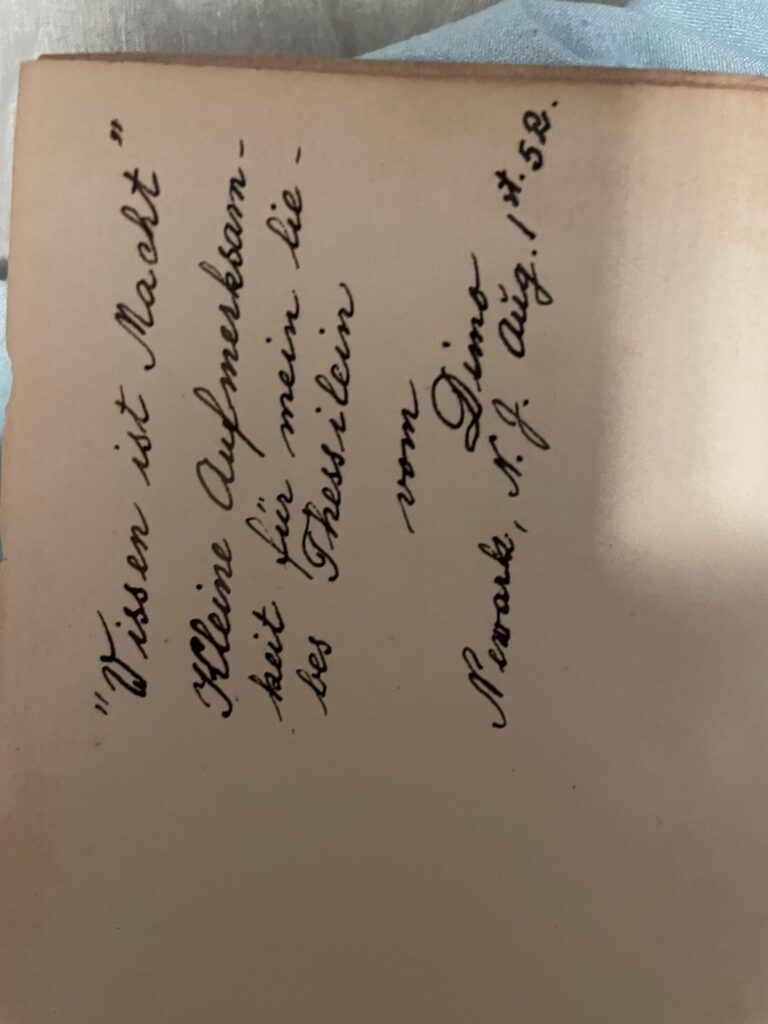 "Wissen ist Macht"
Kleine Aufmerksam-
keit für mein lie-
bes Thessilein
vom
Dimo
Newark, N.J. Aug. 1st. 52.